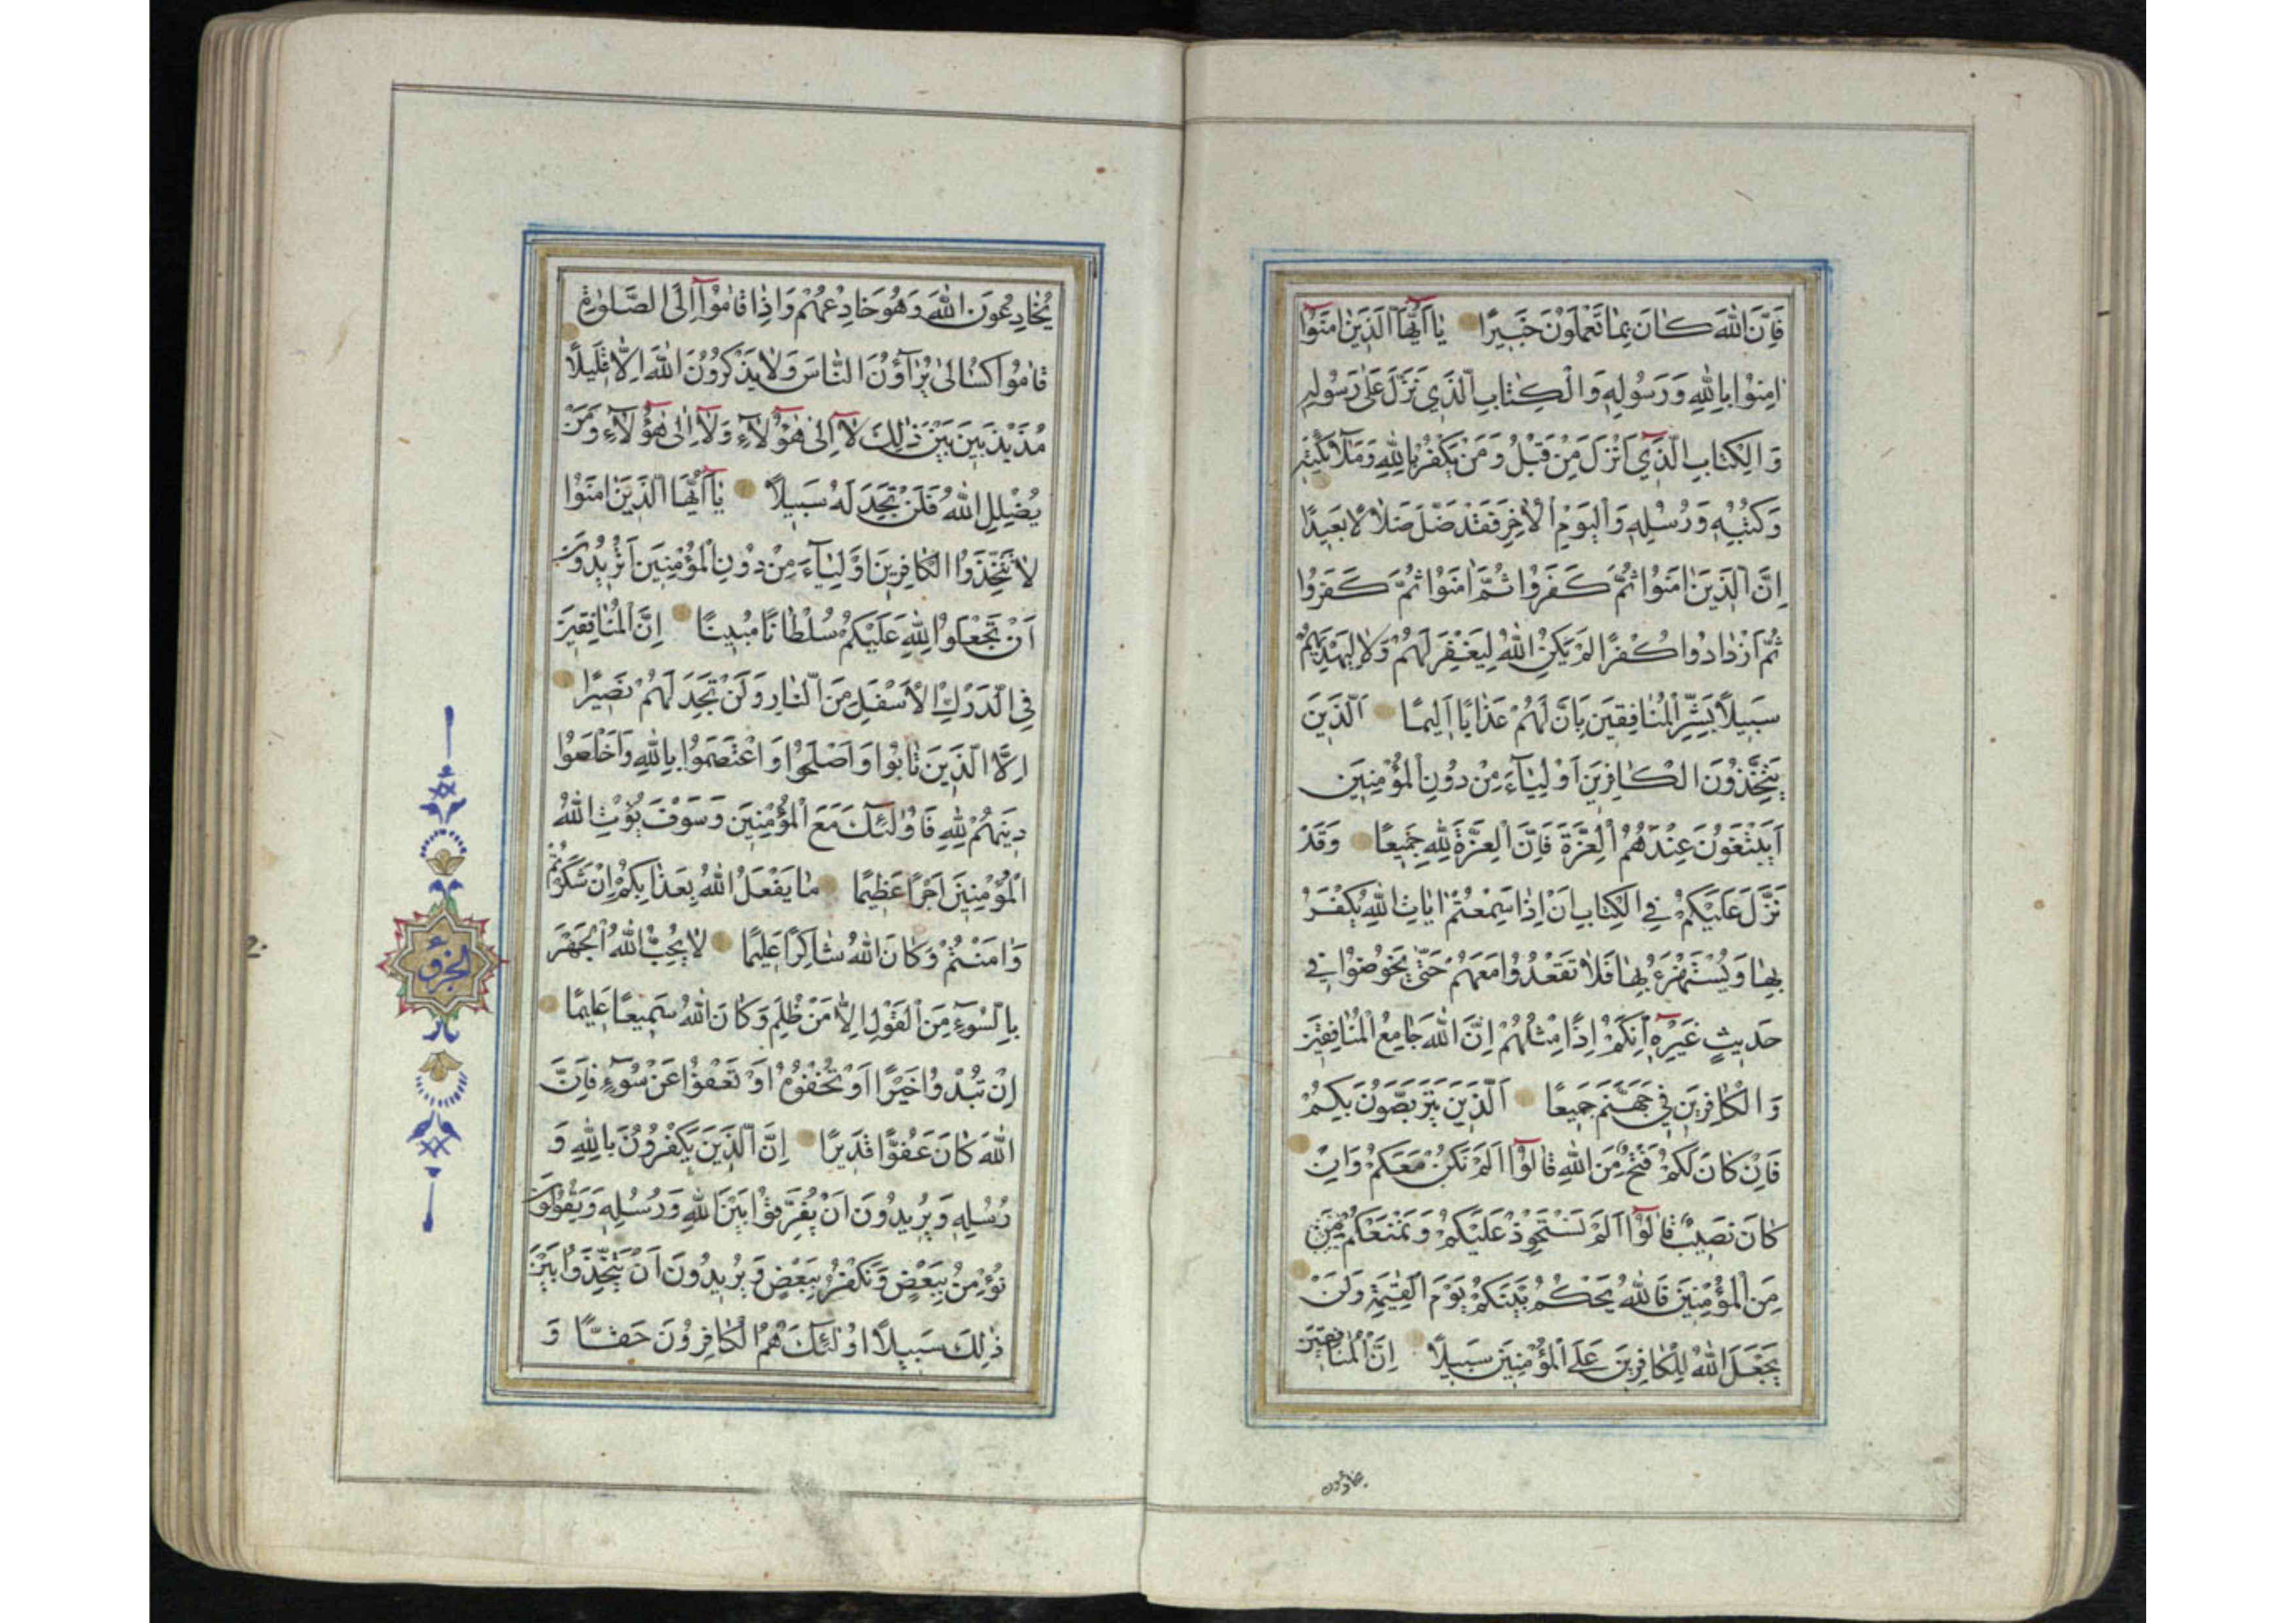 فَاِنَّ اللّٰهَ كَانَ بِمَا تَعْمَلُونَ خَبِيرًا يَآ اَيُّهَا الَّذِينَ اٰمَنُوٓا
اٰمِنُوا بِاللّٰهِ وَرَسُولِهِ وَالْكِتَابِ الَّذِي نَزَّلَ عَلٰى رَسُولِهِ
وَالْكِتَابِ الَّذِيٓ اَنْزَلَ مِنْ قَبْلُ وَمَنْ يَكْفُرْ بِاللّٰهِ وَمَلٰٓائِكَتِهِ
وَكُتُبِهِ وَرُسُلِهِ وَالْيَوْمِ الْاٰخِرِ فَقَدْ ضَلَّ ضَلَالًا بَعِيدًا
اِنَّ الَّذِينَ اٰمَنُوا ثُمَّ كَفَرُوا ثُمَّ اٰمَنُوا ثُمَّ كَفَرُوا
ثُمَّ ازْدَادُوا كُفْرًا لَمْ يَكُنِ اللّٰهُ لِيَغْفِرَ لَهُمْ وَلَا لِيَهْدِيَهُمْ
سَبِيلًا بَشِّرِ الْمُنَافِقِينَ بِاَنَّ لَهُمْ عَذَابًا اَلِيمًا اَلَّذِينَ
يَتَّخِذُونَ الْكَافِرِينَ اَوْلِيَآءَ مِنْ دُونِ الْمُؤْمِنِينَ
اَيَبْتَغُونَ عِنْدَهُمُ الْعِزَّةَ فَاِنَّ الْعِزَّةَ لِلّٰهِ جَمِيعًا وَقَدْ
نَزَّلَ عَلَيْكُمْ فِي الْكِتَابِ اَنْ اِذَا سَمِعْتُمْ اٰيَاتِ اللّٰهِ يُكْفَرُ
بِهَا وَيُسْتَهْزَءُ بِهَا فَلَا تَقْعُدُوا مَعَهُمْ حَتّٰى يَخُوضُوا فِي
حَدِيثٍ غَيْرِهِٓ اِنَّكُمْ اِذًا مِثْلُهُمْ اِنَّ اللّٰهَ جَامِعُ الْمُنَافِقِينَ
وَالْكَافِرِينَ فِي جَهَنَّمَ جَمِيعًا اَلَّذِينَ يَتَرَبَّصُونَ بِكُمْ
فَاِنْ كَانَ لَكُمْ فَتْحٌ مِنَ اللّٰهِ قَالُوٓا اَلَمْ نَكُنْ مَعَكُمْ وَاِنْ
كَانَ نَصِيبٌ قَالُوٓا اَلَمْ نَسْتَحْوِذْ عَلَيْكُمْ وَنَمْنَعْكُمْ مِنَ
مِنَ الْمُؤْمِنِينَ فَاللّٰهُ يَحْكُمُ بَيْنَكُمْ يَوْمَ الْقِيٰمَةِ وَلَنْ
يَجْعَلَ اللّٰهُ لِلْكَافِرِينَ عَلَى الْمُؤْمِنِينَ سَبِيلًا اِنَّ الْمُنَافِقِينَ
يخادعون
يُخَادِعُونَ اللّٰهَ وَهُوَ خَادِعُهُمْ وَاِذَا قَامُوٓا اِلَى الصَّلٰوةِ
قَامُوا كُسَالٰى يُرَآؤُنَ النَّاسَ وَلَا يَذْكُرُونَ اللّٰهَ اِلَّا قَلِيلًا
مُذَبْذَبِينَ بَيْنَ ذٰلِكَ لَآ اِلٰى هٰٓؤُلَآءِ وَلَآ اِلٰى هٰٓؤُلَآءِ وَمَنْ
يُضْلِلِ اللّٰهُ فَلَنْ تَجِدَ لَهُ سَبِيلًا يَآ اَيُّهَا الَّذِينَ اٰمَنُوا
لَا تَتَّخِذُوا الْكَافِرِينَ اَوْلِيَآءَ مِنْ دُونِ الْمُؤْمِنِينَ اَتُرِيدُونَ
اَنْ تَجْعَلُوا لِلّٰهِ عَلَيْكُمْ سُلْطَانًا مُبِينًا اِنَّ الْمُنَافِقِينَ
فِي الدَّرْكِ الْاَسْفَلِ مِنَ النَّارِ وَلَنْ تَجِدَ لَهُمْ نَصِيرًا
اِلَّا الَّذِينَ تَابُوا وَاَصْلَحُوا وَاعْتَصَمُوا بِاللّٰهِ وَاَخْلَصُوا
دِينَهُمْ لِلّٰهِ فَاُولٰٓئِكَ مَعَ الْمُؤْمِنِينَ وَسَوْفَ يُؤْتِ اللّٰهُ
الْمُؤْمِنِينَ اَجْرًا عَظِيمًا مَا يَفْعَلُ اللّٰهُ بِعَذَابِكُمْ اِنْ شَكَرْتُمْ
وَاٰمَنْتُمْ وَكَانَ اللّٰهُ شَاكِرًا عَلِيمًا لَا يُحِبُّ اللّٰهُ الْجَهْرَ
بِالسُّوٓءِ مِنَ الْقَوْلِ اِلَّا مَنْ ظُلِمَ وَكَانَ اللّٰهُ سَمِيعًا عَلِيمًا
اِنْ تُبْدُوا خَيْرًا اَوْ تُخْفُوهُ اَوْ تَعْفُوا عَنْ سُوٓءٍ فَاِنَّ
اللّٰهَ كَانَ عَفُوًّا قَدِيرًا اِنَّ الَّذِينَ يَكْفُرُونَ بِاللّٰهِ وَ
رُسُلِهِ وَيُرِيدُونَ اَنْ يُفَرِّقُوا بَيْنَ اللّٰهِ وَرُسُلِهِ وَيَقُولُونَ
نُؤْمِنُ بِبَعْضٍ وَنَكْفُرُ بِبَعْضٍ وَيُرِيدُونَ اَنْ يَتَّخِذُوا بَيْنَ
ذٰلِكَ سَبِيلًا اُولٰٓئِكَ هُمُ الْكَافِرُونَ حَقًّا وَ
الجزؤ